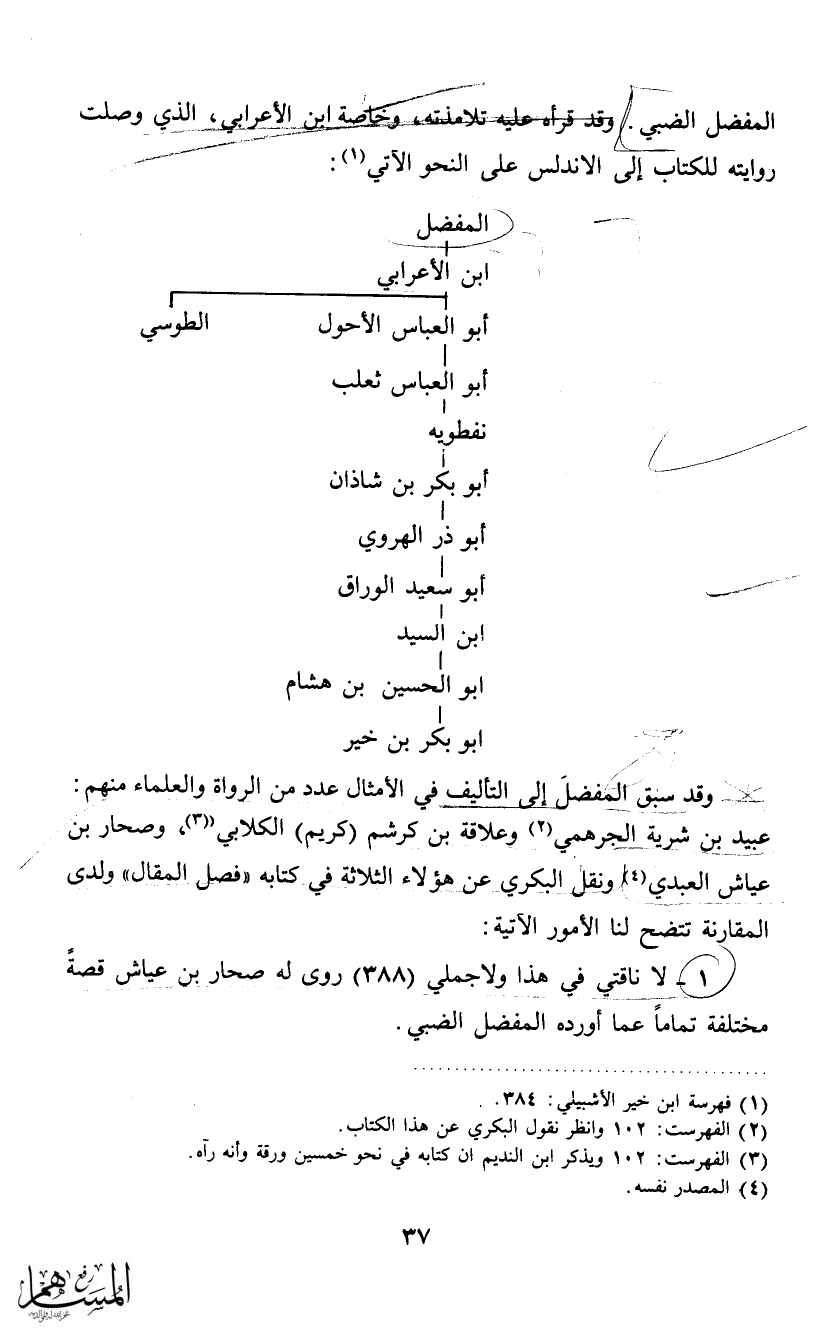 المفضل الضبي. وقد قرأه عليه تلامذته، وخاصة ابن الأعرابي، الذي وصلت
روايته للكتاب إلى الاندلس على النحو الآتي(١):
المفضل
ابن الأعرابي
أبو العباس الأحول الطوسي
أبو العباس ثعلب
نفطويه
أبو بكر بن شاذان
أبو ذر الهروي
أبو سعيد الوراق
ابن السيد
ابو الحسين بن هشام
ابو بكر بن خير
وقد سبق المفضلَ إلى التأليف في الأمثال عدد من الرواة والعلماء منهم:
عبيد بن شرية الجرهمي(٢) وعلاقة بن كرشم (كريم) الكلابي(٣)، وصحار بن
عياش العبدي(٤) ونقل البكري عن هؤلاء الثلاثة في كتابه «فصل المقال» ولدى
المقارنة تتضح لنا الأمور الآتية:
١ - لا ناقتي في هذا ولاجملي (٣٨٨) روى له صحار بن عياش قصةً
مختلفة تماماً عما أورده المفضل الضبي.
(١) فهرسة ابن خير الأشبيلي: ٣٨٤.
(٢) الفهرست: ١٠٢ وانظر نقول البكري عن هذا الكتاب.
(٣) الفهرست: ١٠٢ ويذكر ابن النديم ان كتابه في نحو خمسين ورقة وأنه رآه.
(٤) المصدر نفسه.
٣٧
رفع
المساهم